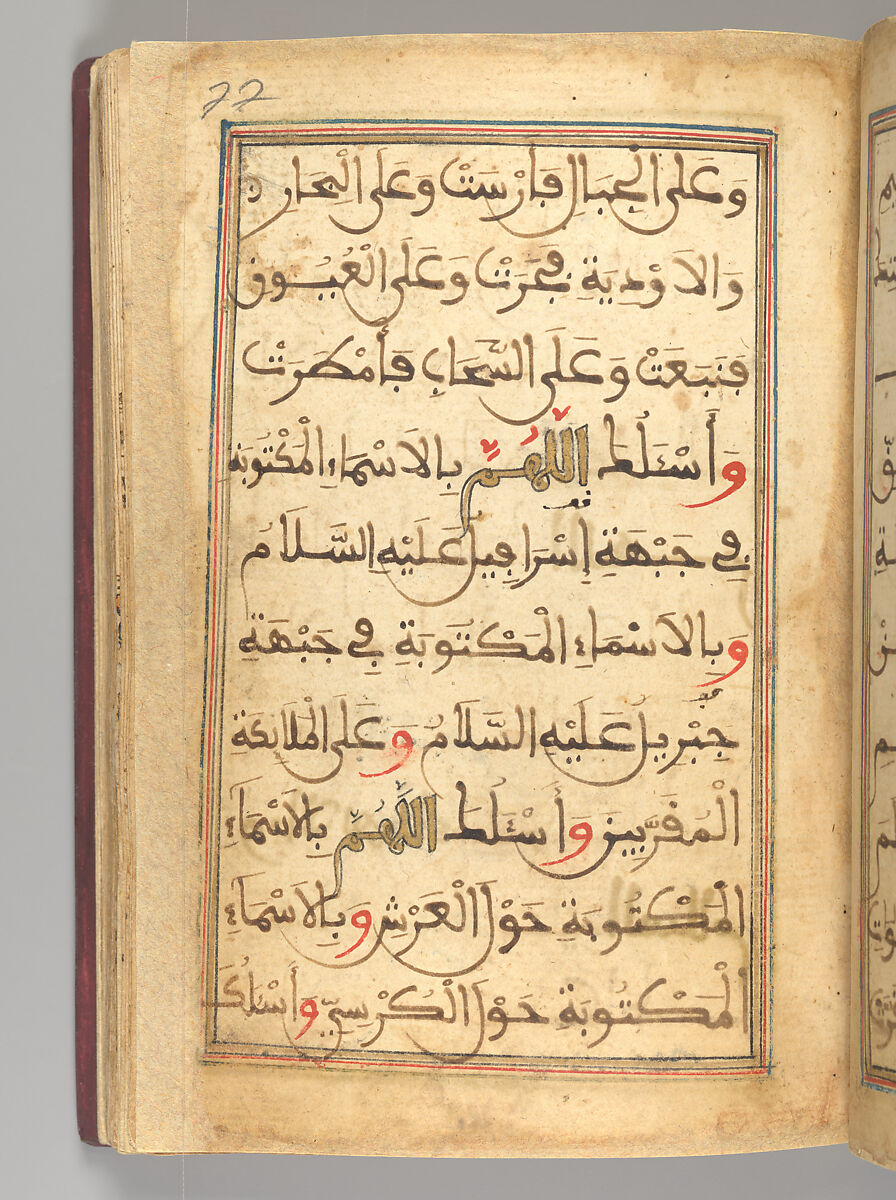 وَعَلَى الْجِبَالِ فَأَرْسَتْ وَعَلَى الْبِحَارِ
وَالاَوْدِيَةِ فَجَرَتْ وَعَلَى الْعُيُونِ
فَنَبَعَتْ وَعَلَى السَّحَابِ فَأَمْطَرَتْ
وَأَسْـَٔلُكَ اللَّهُمَّ بِالاَسْمَاءِ الْمَكْتُوبَةِ
فِي جَبْهَةِ إِسْرَافِيلَ عَلَيْهِ السَّلَامُ
وَبِالاَسْمَاءِ الْمَكْتُوبَةِ فِي جَبْهَةِ
جِبْرِيلَ عَلَيْهِ السَّلَامُ وَعَلَى الْمَلَائِكَةِ
الْمُقَرَّبِينَ وَأَسْـَٔلُكَ اللَّهُمَّ بِالاَسْمَاءِ
الْمَكْتُوبَةِ حَوْلَ الْعَرْشِ وَبِالاَسْمَاءِ
الْمَكْتُوبَةِ حَوْلَ الْكُرْسِيِّ وَأَسْـَٔلُكَ